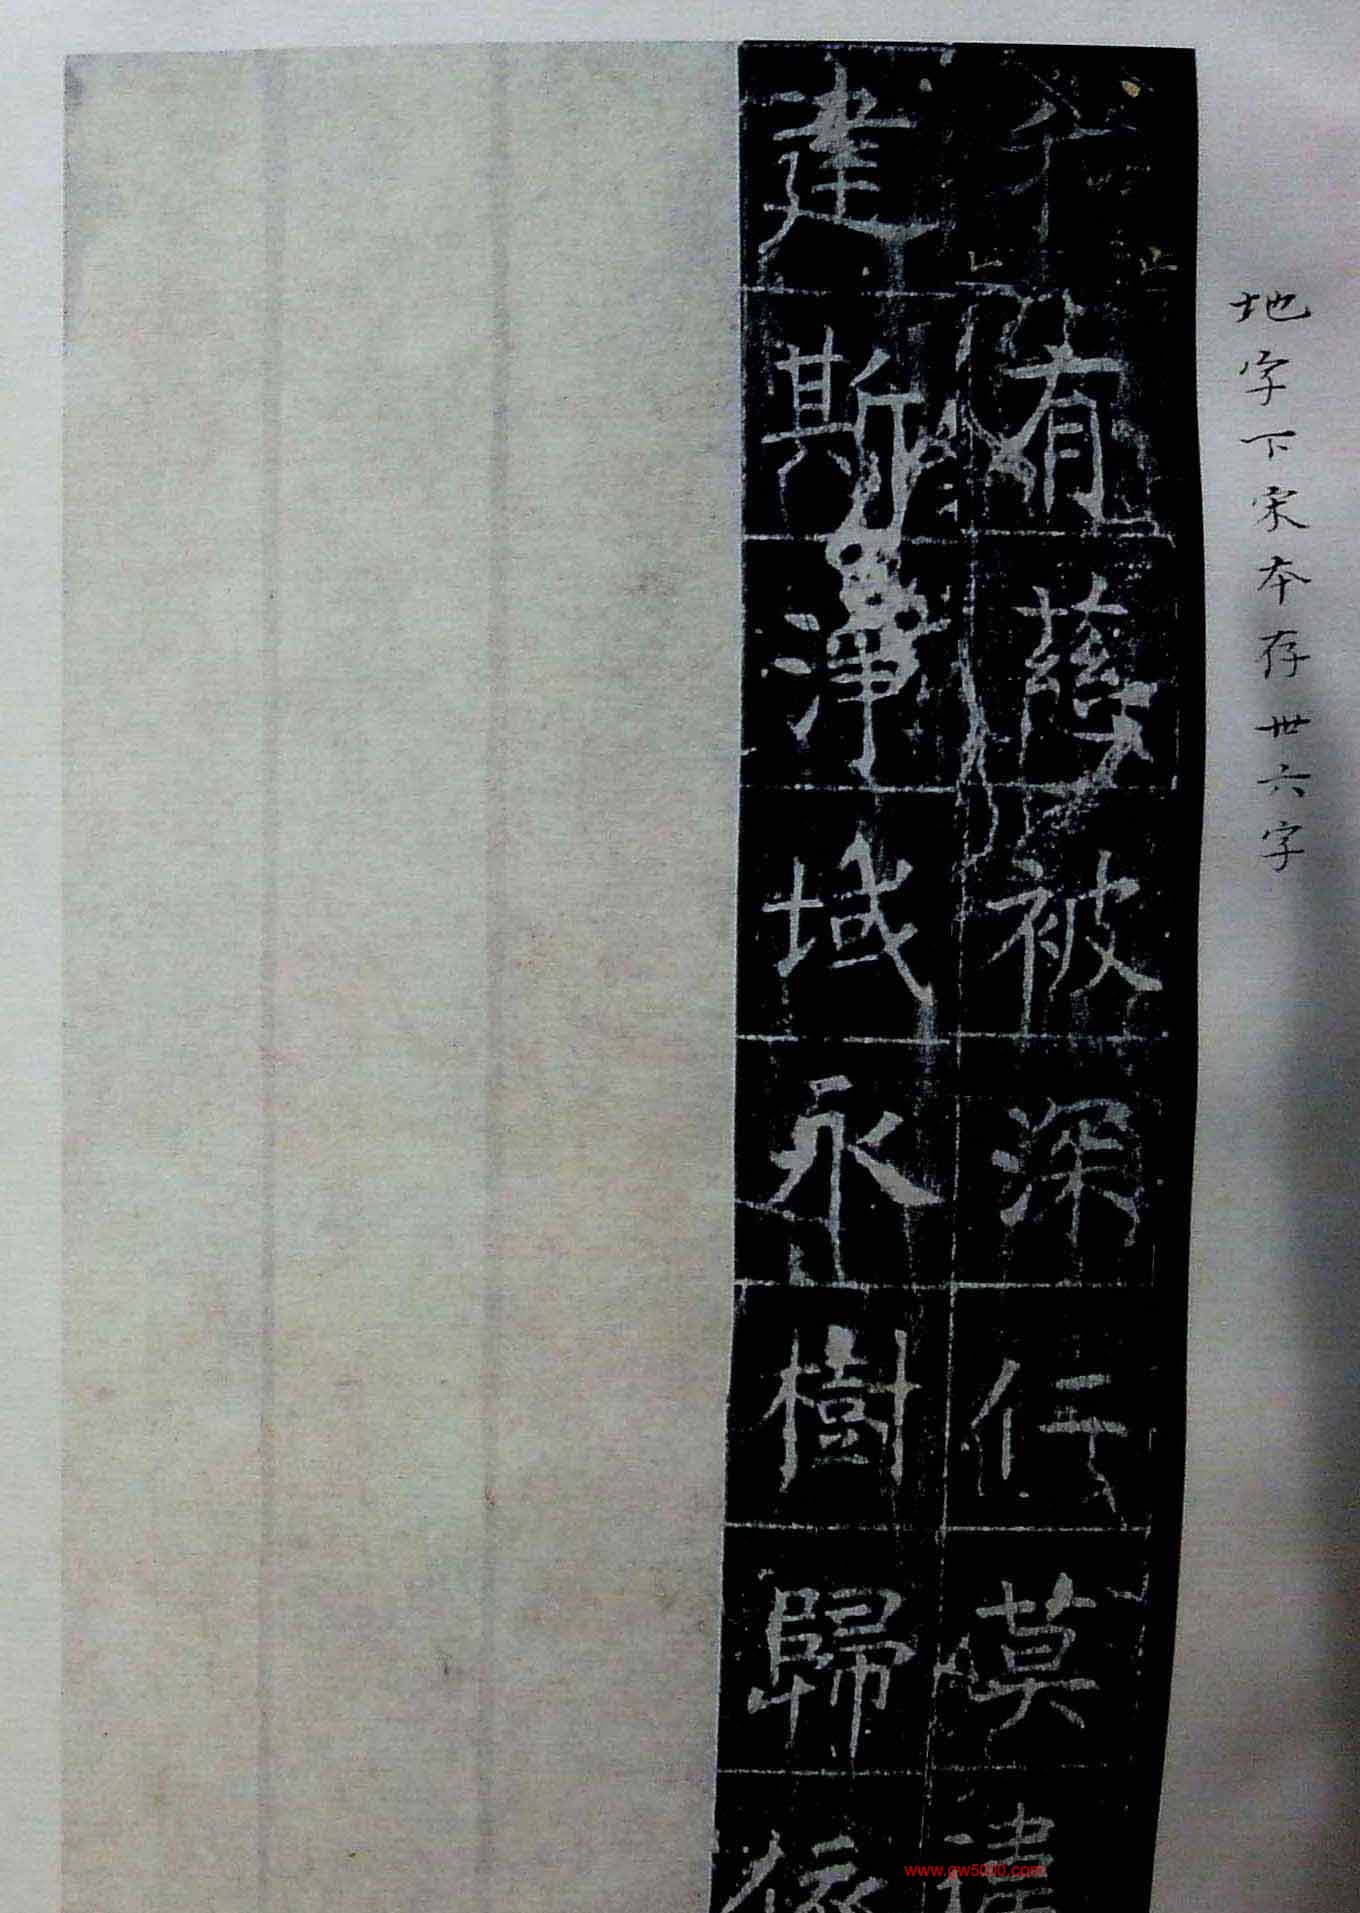 地字下宋本存卅六字
有慈被深仁莫違
建斯淨域永樹歸依
www.gw5000.com